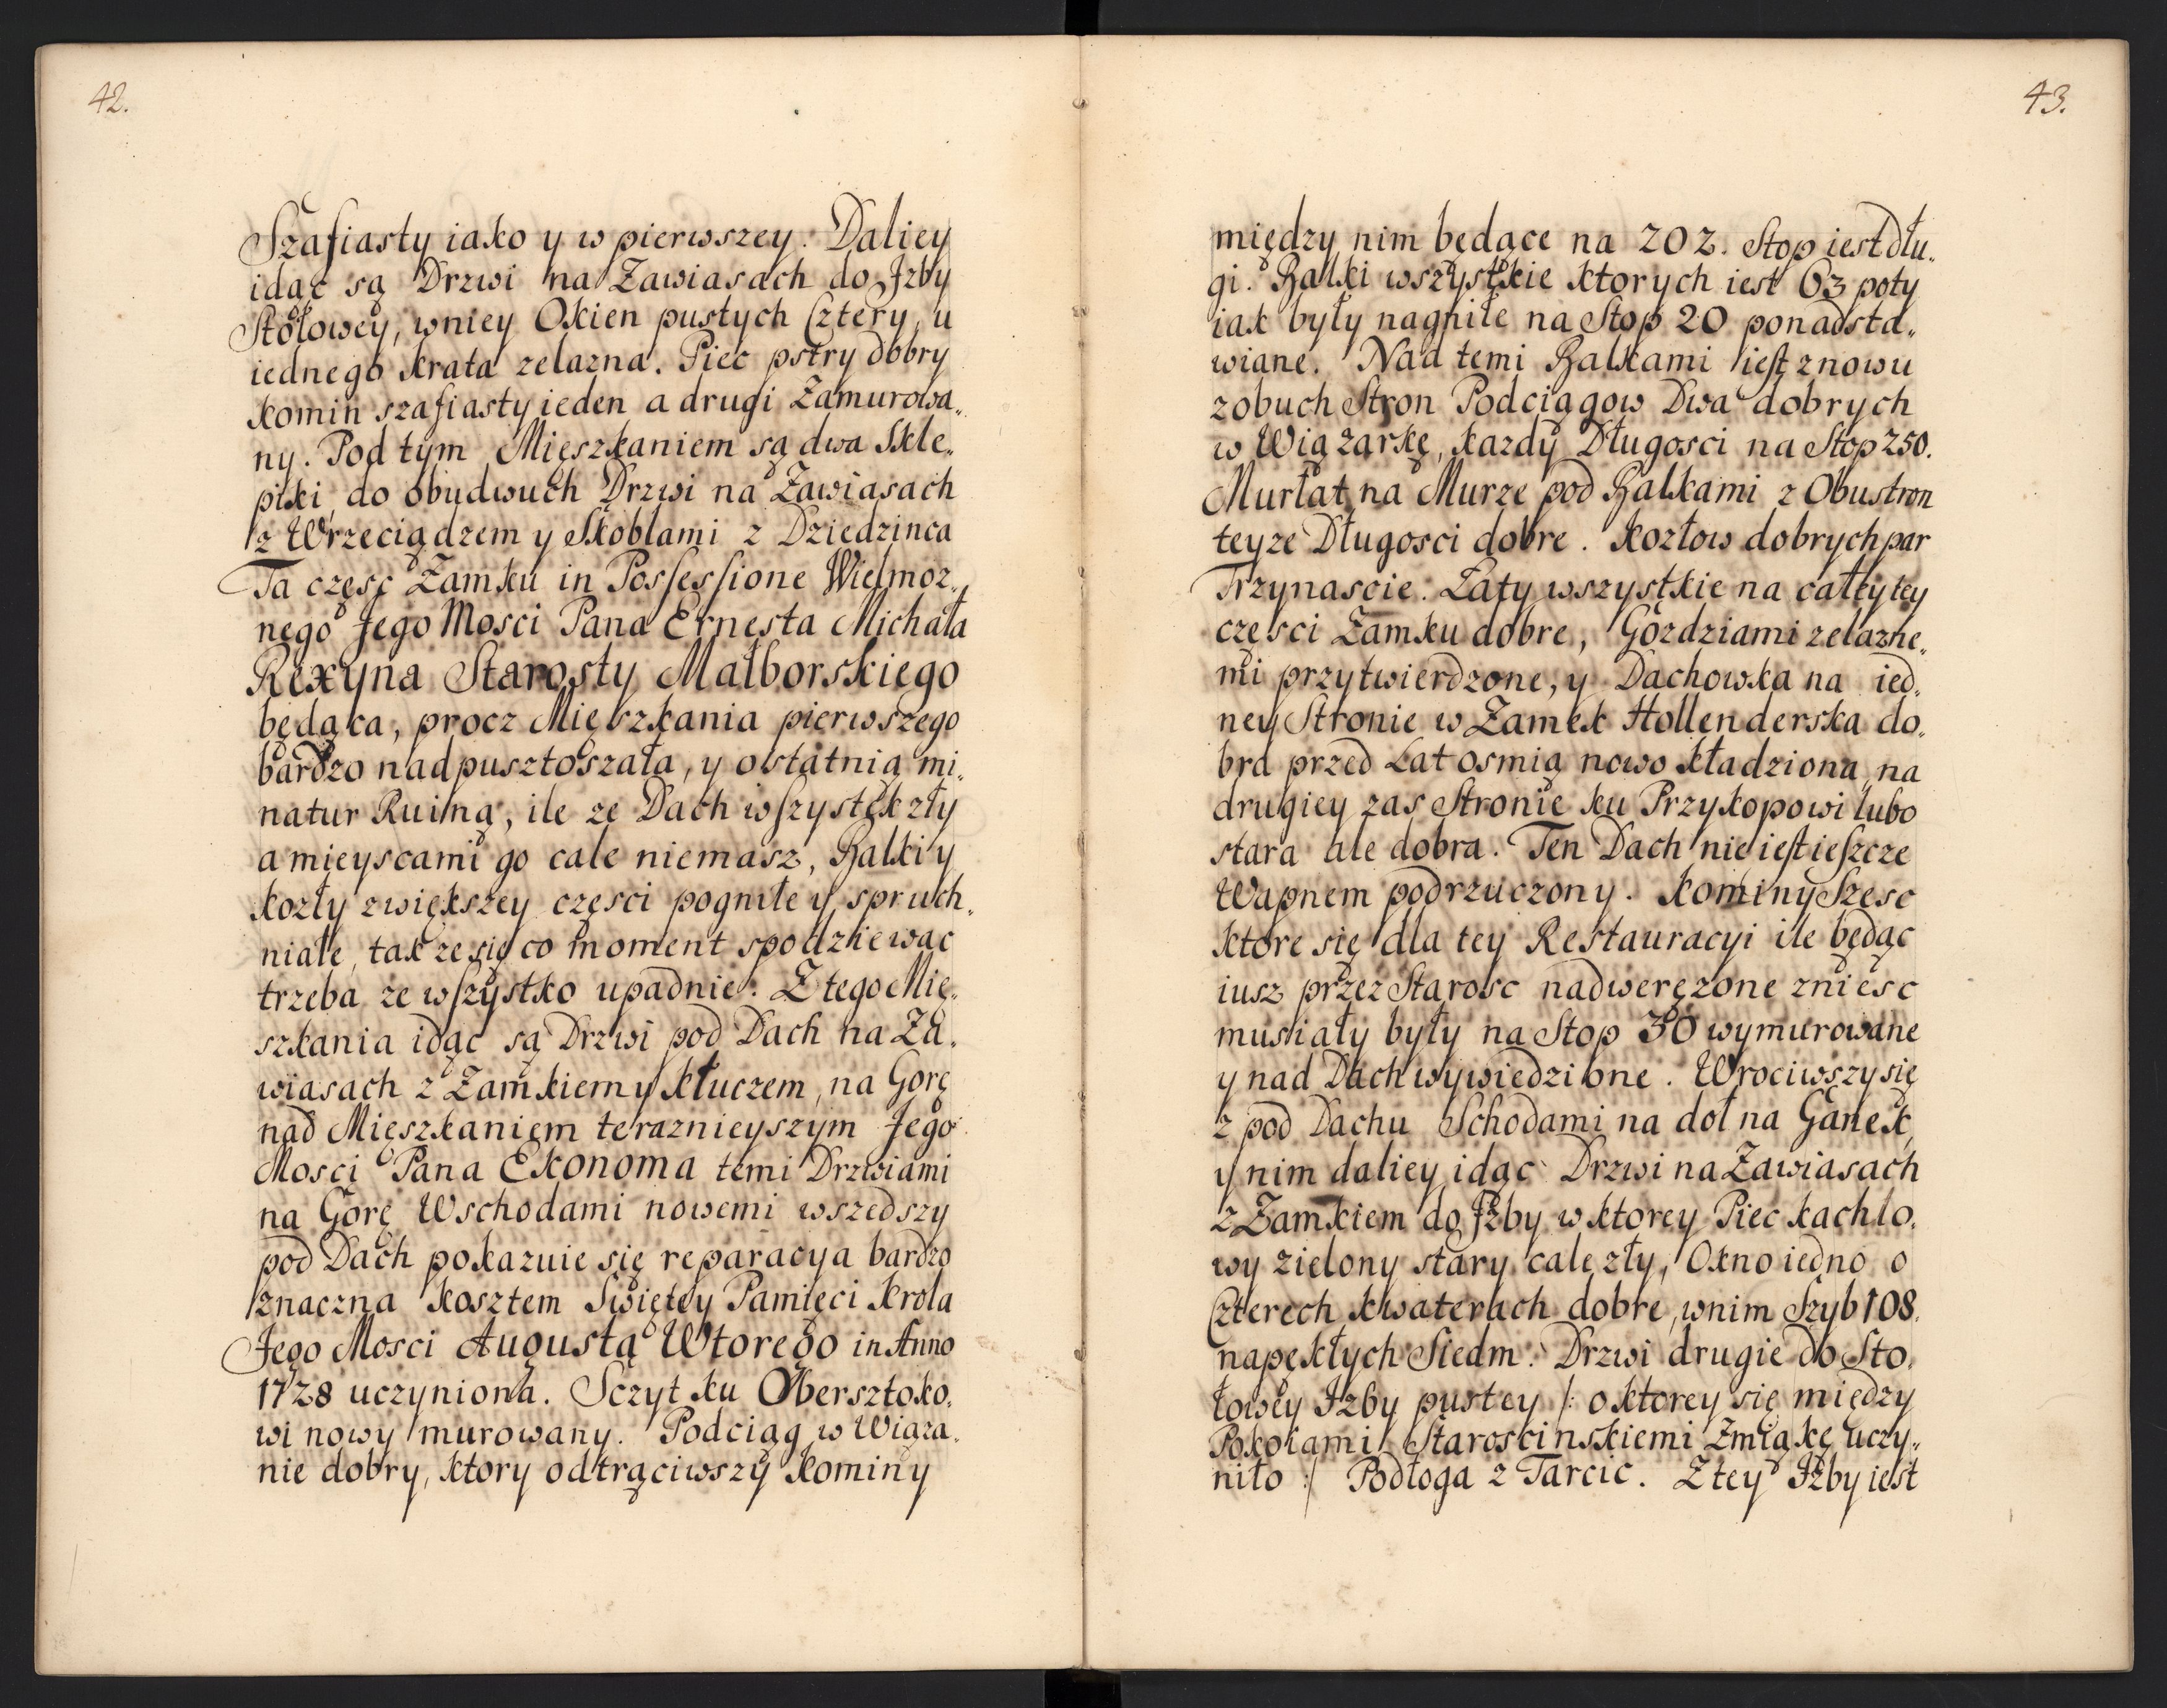 42.
Szafiasty iako y w pierwszey. Daliey
idąc są Drzwi na Zawiasach do Jzby
Stołowey, wniey Okien pustych Cztery, u
iednego krata zelazna. Piec pstry dobry
komin szafiasty ieden a drugi Zamurowa„
ny. Pod tym Mięszkaniem są dwa Skle„
piki, do obudwuch Drzwi na Zawiasach
z Wrzeciądzem y Skoblami z Dziedzinca
Ta częsc Zamku in Possessione Wielmoz„
nego Jego Mosci Pana Ernesta Michała
Rexyna Starosty Malborskiego
będąca, procz Mięszkania pierwszego
bardzo nadpusztoszała, y ostatnią mi„
natur Ruiną, ile ze Dach wszystek zły
a mieyscami go cale niemasz, Balki y
kozły zwiększey częsci pogniłe y spruch„
niałe, tak ze się co moment spodziewac
trzeba ze wszystko upadnie. Z tego Mię„
szkania idąc są Drzwi pod Dach na Za„
wiasach z Zamkiem y Kluczem, na Gorę
nad Mięszkaniem teraznieyszym Jego
Mosci Pana Ekonoma temi Drzwiami
na Gorę Wschodami nowemi wszedszy
pod Dach pokazuie się reparacya bardzo
znaczna kosztem Swiętey Pamięci Krola
Jego Mosci Augusta Wtorego in Anno
1728 uczyniona. Sczyt ku Obersztoko„
wi nowy murowany. Podciąg w Wiąza„
nie dobry, ktory odtrąciwszy kominy
43.
między nim będące na 202. Stop iest dłu„
gi. Balki wszystkie ktorych iest 63 poty
iak były nagniłe na Stop 20 ponadsta„
wiane. Nad temi Balkami iest znowu
zobuch Stron Podciągow Dwa dobrych
w Wiązarkę, kazdy Długosci na Stop 250.
Murłat na Murze pod Balkami z Obustron
teyze Długosci dobre. Kozłow dobrych par
Trzynascie. Łaty wszystkie na całey tey
częsci Zamku dobre, Gozdziami zelazne„
mi przytwierdzone, y Dachowka na ied„
ney Stronie w Zamek Hollenderska do„
bra przed Lat osmią nowo kładziona, na
drugiey zas Stronie ku Przykopowi lubo
stara ale dobra. Ten Dach nie iest ieszcze
Wapnem podrzuczony. Kominy Szesc
ktore się dla tey Restauracyi ile będąc
iusz przez Starosc nadwerężone zniesc
musiały były na Stop 30 wymurowane
y nad Dach wywiedzione. Wrociwszy się
z pod Dachu Schodami na doł na Ganek,
y nim daliey idąc Drzwi na Zawiasach
z Zamkiem do Jzby w ktorey Piec kachlo„
wy zielony stary cale zły, Okno iedno o
Czterech kwaterach dobre, wnim Szyb 108.
napękłych Siedm. Drzwi drugie do Sto„
łowey Izby pustey /: o ktorey się między
Pokoiami Staroscinskiemi Zmiąkę uczy„
niło :/ Podłoga z Tarcic. Z tey Izby iest